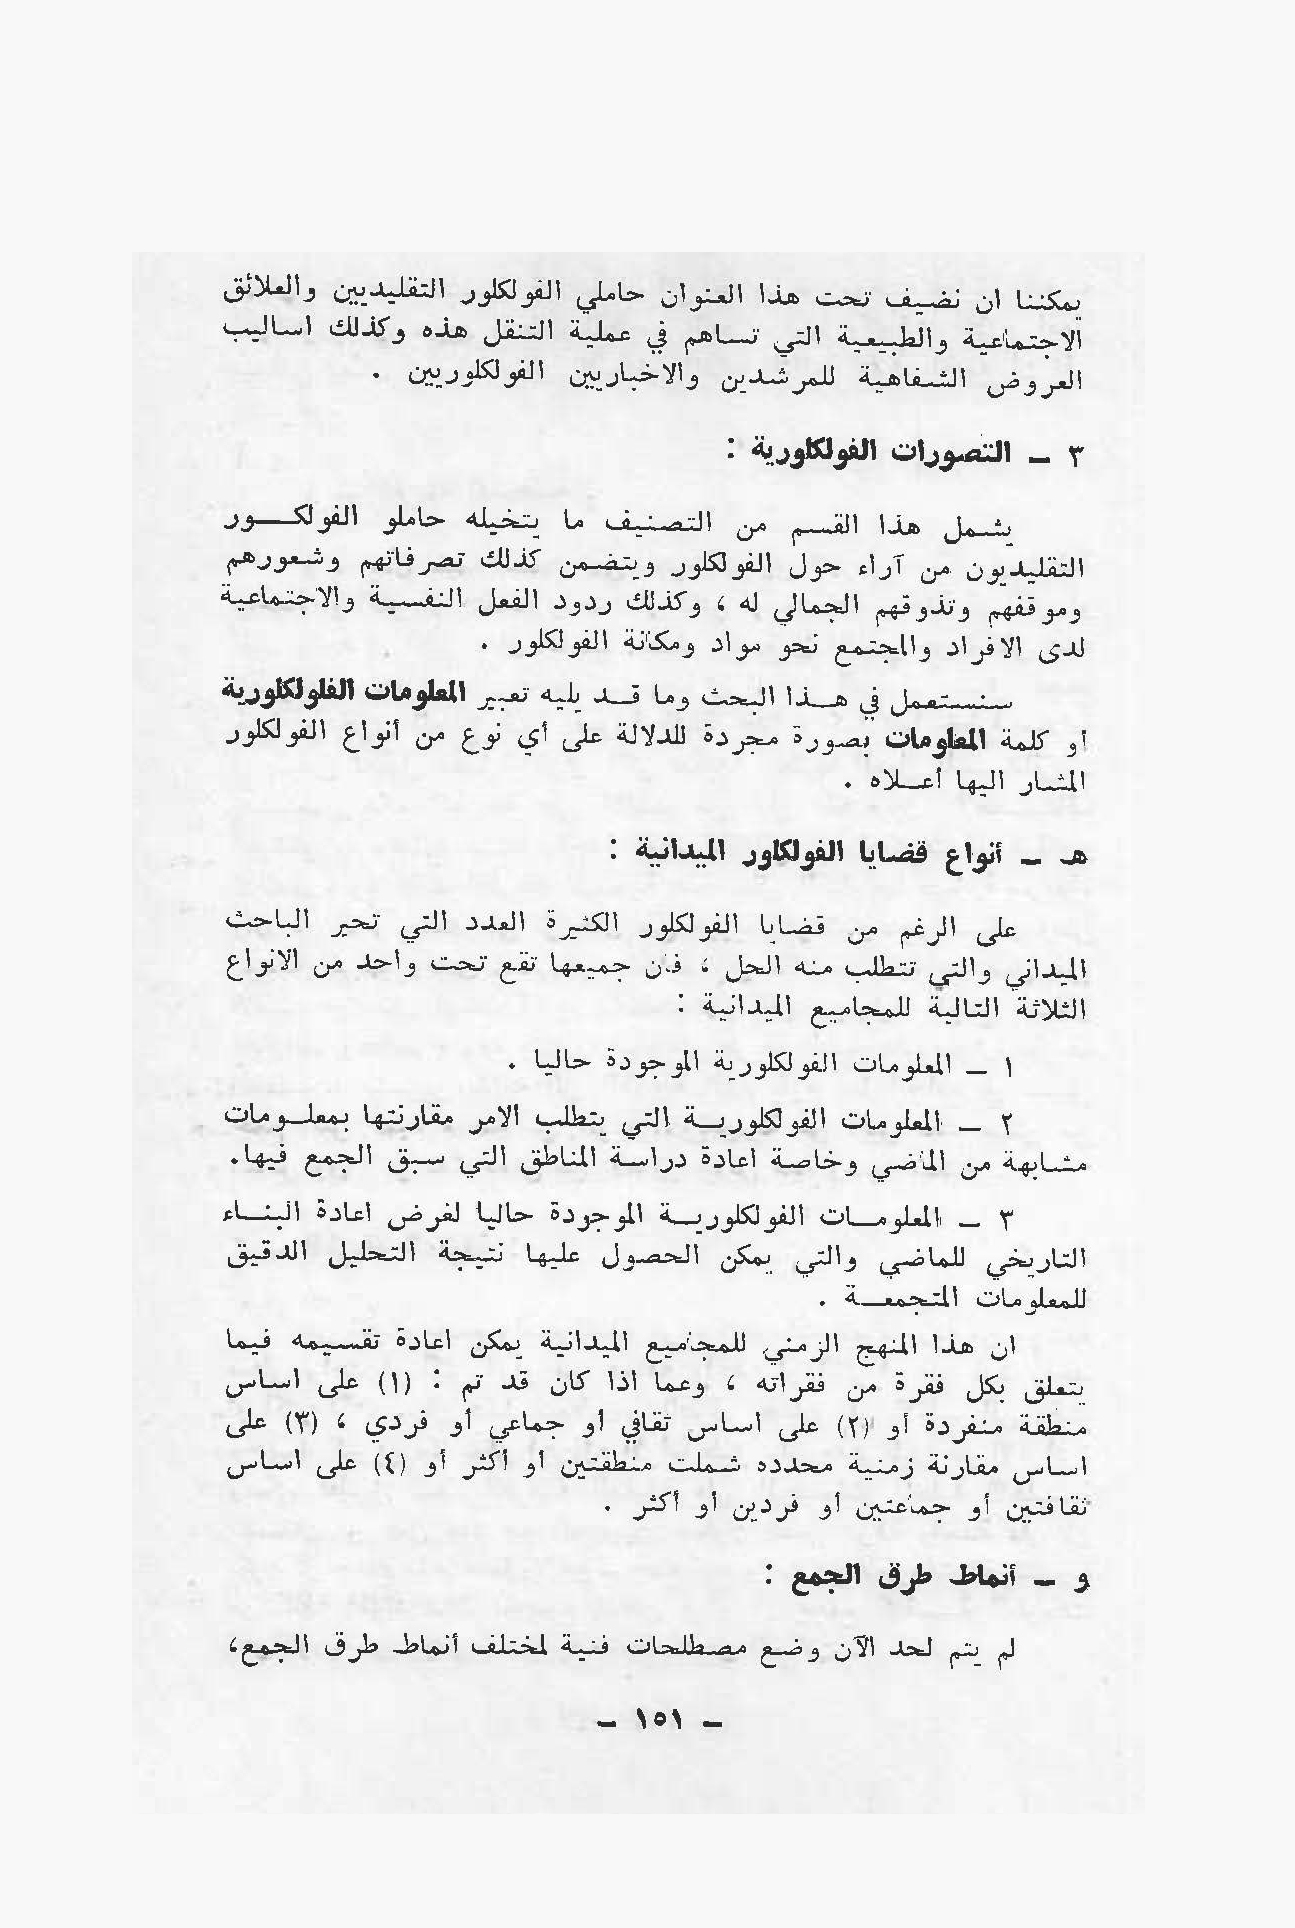 يمكننا ان نضيف تحت هذا العنوان حاملي الفولكلور التقليديين والعلائق
الاجتماعية والطبيعية التي تساهم في عملية التنقل هذه وكذلك اساليب
العروض الشفاهية للمرشدين والاخباريين الفولكلوريين .
٣ ــ التصورات الفولكلورية :
يشمل هذا القسم من التصنيف ما يتخيله حاملو الفولكـــور
التقليديون من آراء حول الفولكلور ويتضمن كذلك تصرفاتهم وشعورهم
وموقفهم وتذوقهم الجمالي له ، وكذلك ردود الفعل النفسية والاجتماعية
لدى الافراد والمجتمع نحو مواد ومكانة الفولكلور .
سنستعمل في هـــذا البحث وما قــد يليه تعبير المعلومات الفلولكلورية
أو كلمة المعلومات بصورة مجردة للدلالة على أي نوع من أنواع الفولكلور
المشار اليها أعــلاه .
هـ ــ أنواع قضايا الفولكلور الميدانية :
على الرغم من قضايا الفولكلور الكثيرة العدد التي تحير الباحث
الميداني والتي تتطلب منه الحل ، فان جميعها تقع تحت واحد من الانواع
الثلاثة التالية للمجاميع الميدانية :
١ ــ المعلومات الفولكلورية الموجودة حاليا .
٢ ــ المعلومات الفولكلوريــة التي يتطلب الامر مقارنتها بمعلــومات
مشابهة من الماضي وخاصة اعادة دراسة المناطق التي سبق الجمع فيها.
٣ ــ المعلومــات الفولكلوريــة الموجودة حاليا لغرض اعادة البنــاء
التاريخي للماضي والتي يمكن الحصول عليها نتيجة التحليل الدقيق
للمعلومات المتجمعــة .
ان هذا المنهج الزمني للمجاميع الميدانية يمكن اعادة تقسيمه فيما
يتعلق بكل فقرة من فقراته ، وعما اذا كان قد تم : (١) على اساس
منطقة منفردة أو (٢) على اساس ثقافي أو جماعي أو فردي ، (٣) على
اساس مقارنة زمنية محدده شملت منطقتين أو أكثر أو (٤) على اساس
ثقافتين أو جماعتين أو فردين أو أكثر .
و ــ أنماط طرق الجمع :
لم يتم لحد الآن وضع مصطلحات فنية لمختلف أنماط طرق الجمع،
ــ ١٥١ ــ